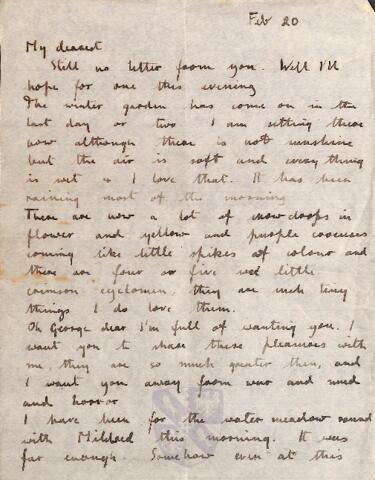 Feb 20
My dearest
Still no letter from you. Well I'll
hope for one this evening
The winter garden has come on in the
last day or two I am sitting there
now although there is not sunshine
but the air is soft and every thing
is wet & I love that. It has been
raining most of the morning
There are now a lot of snowdrops in
flower and yellow and purple crocuses
coming like little spikes of colour and
there are four or five wee little
crimson cyclamen, they are such tiny
things I do love them.
Oh George dear I'm full of wanting you. I
want you to share these pleasures with
me, they are so much greater then, and
I want you away from war and mud
and horror
I have been for the water meadow round
with Mildred this morning. It was
far enough. Somehow even at this